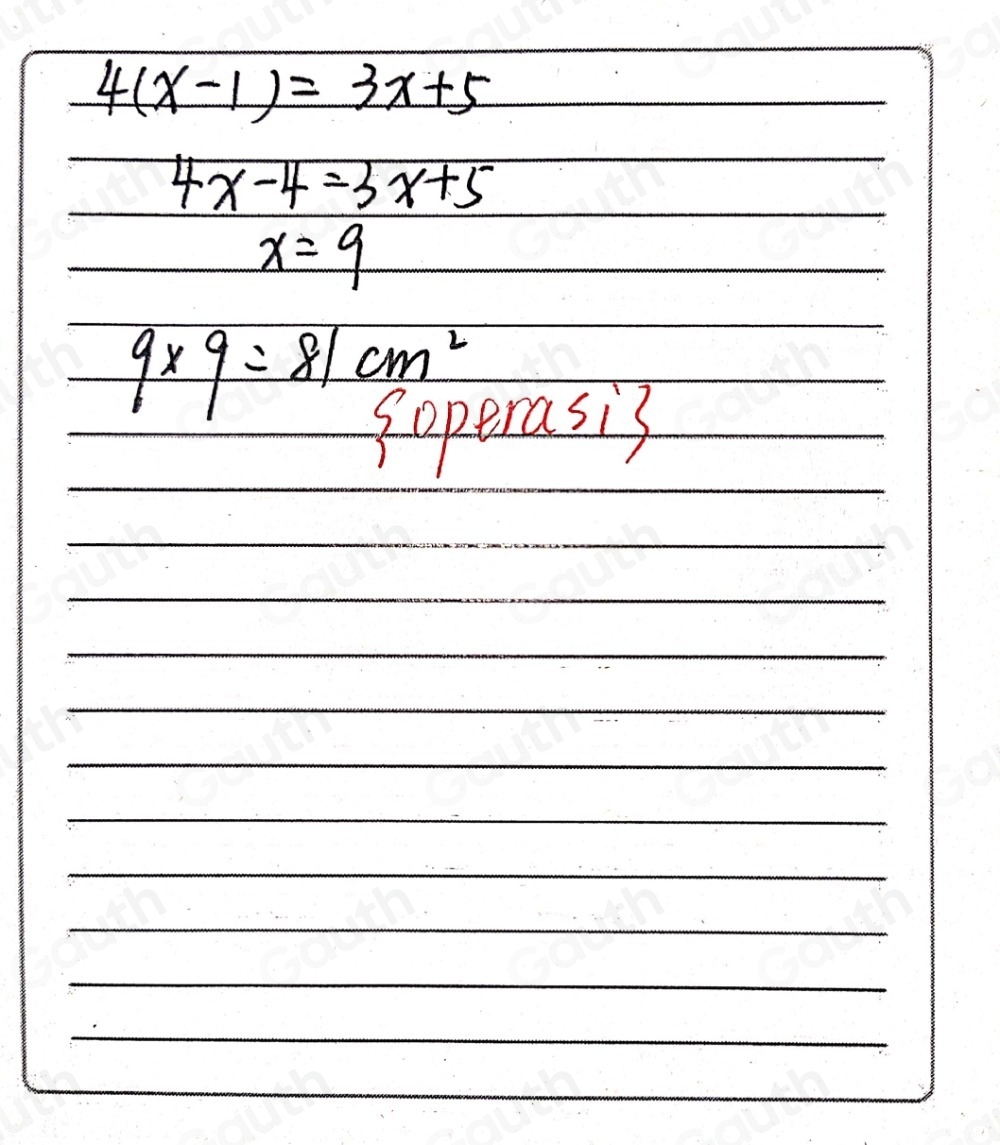 4(x-1)= 3x+5
4x-4=3x+5
x=9
9x9=81 cm²
{operasi}